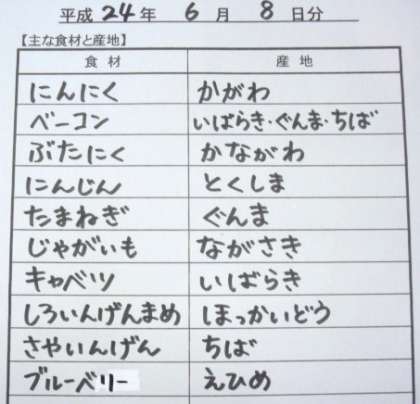 平成 24 年 6 月 8 日分
【主な食材と産地】
食材 産地
にんにく かがわ
ベーコン いばらき・ぐんま・ちば
ぶたにく かながわ
にんじん とくしま
たまねぎ ぐんま
じゃがいも ながさき
キャベツ いばらき
しろいんげんまめ ほっかいどう
さやいんげん ちば
ブルーベリー えひめ